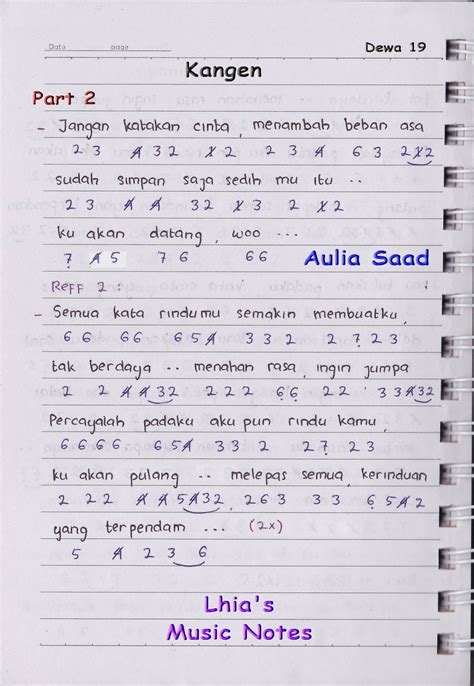 Date page Dewa 19
Kangen
Part 2
- Jangan katakan cinta, menambah beban asa
2 3 4̸ 3 2 1̸ 2 2 3 4̸ 6 3 2 1̸ 2
sudah simpan saja sedih mu itu ..
2 3 4̸ 4̸ 3 2 3 2 1̸ 2
ku akan datang, woo ...
7 4̸ 5 7 6 6 6 Aulia Saad
Reff 2 :
- Semua kata rindumu semakin membuatku,
6 6 6 6 6 5 4̸ 3 3 2 2 7 2 3
tak berdaya .. menahan rasa ingin jumpa
2 2 4̸ 4̸ 3 2 2 2 2 6 6 2 2 3 3 4̸ 3 2
Percayalah padaku aku pun rindu kamu,
6 6 6 6 6 5 4̸ 3 3 2 2 7 2 3
ku akan pulang .. melepas semua, kerinduan
2 2 2 4̸ 4̸ 5 4̸ 3 2 2 6 3 3 3 6 5 4̸ 2
yang terpendam ... (2x)
5 4̸ 2 3 6
Lhia's
Music Notes